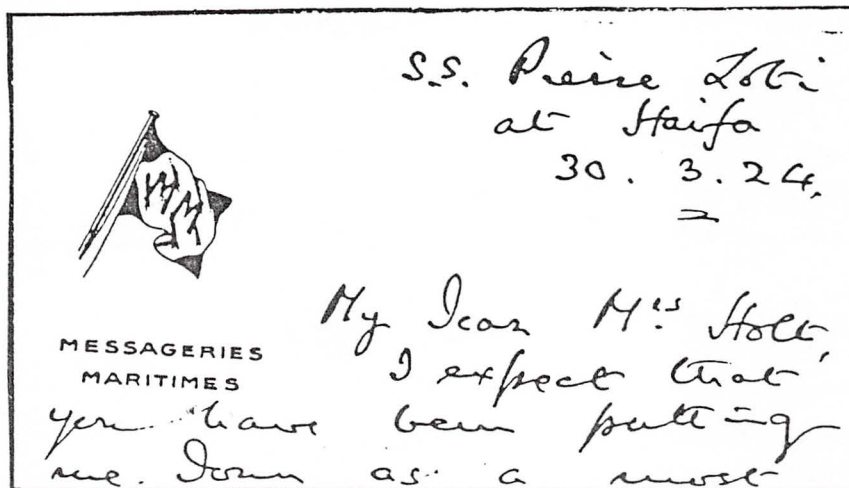 S.S. Pierre Loti
at Haifa
30. 3. 24.
MM
MESSAGERIES
MARITIMES
My Dear Mrs Holt,
I expect that
you have been putting
me down as a most